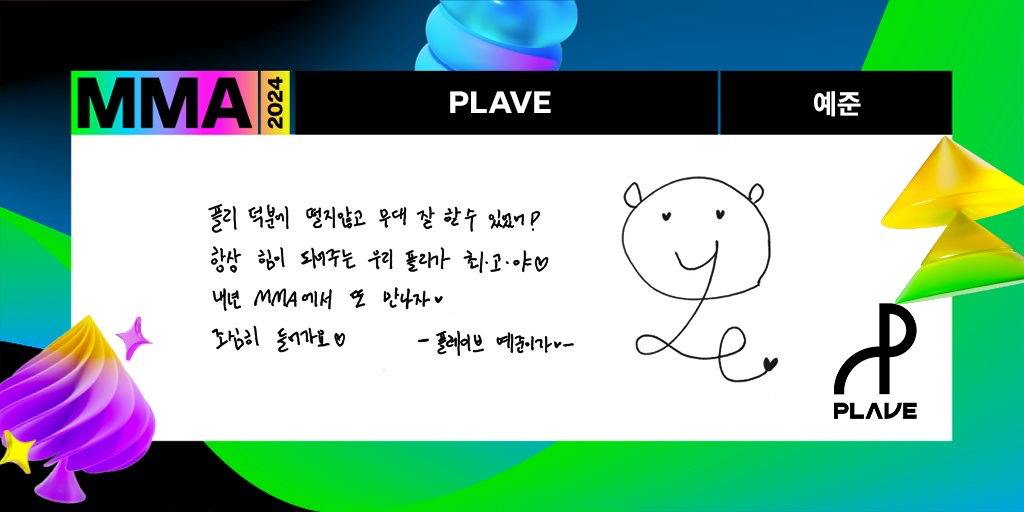 MMA 2024
PLAVE
예준
플리 덕분에 떨지않고 무대 잘 한 수 있었어!
항상 힘이 되어주는 우리 플리가 최·고·야♡
내년 MMA에서 또 만나자♥
조심히 들어가요♡
-플레이브 예준이가♥-
PLAVE